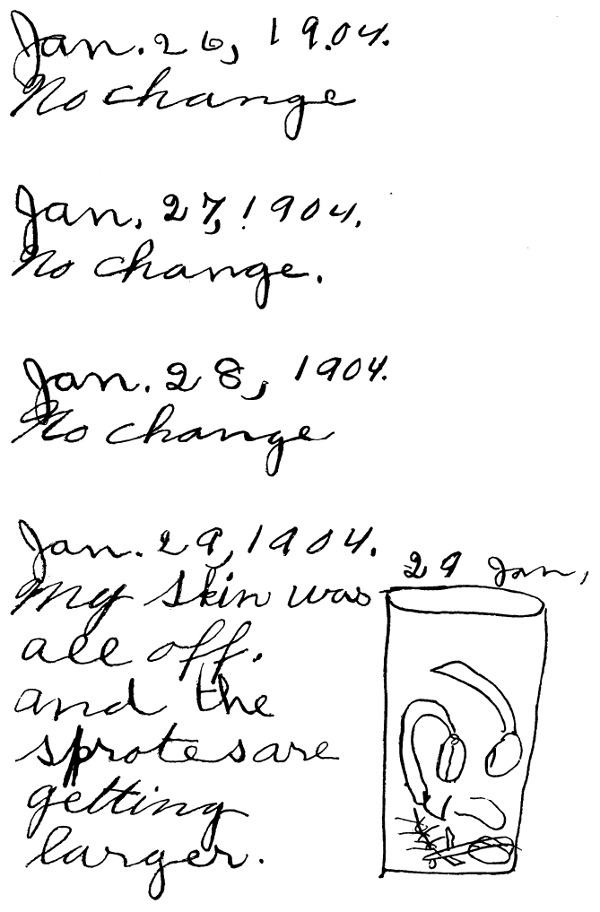 Jan. 26, 1904.
No change
Jan. 27, 1904.
No change.
Jan. 28, 1904.
No change
Jan. 29, 1904.
29 Jan,
My skin was
all off.
and the
sprotes are
getting
larger.